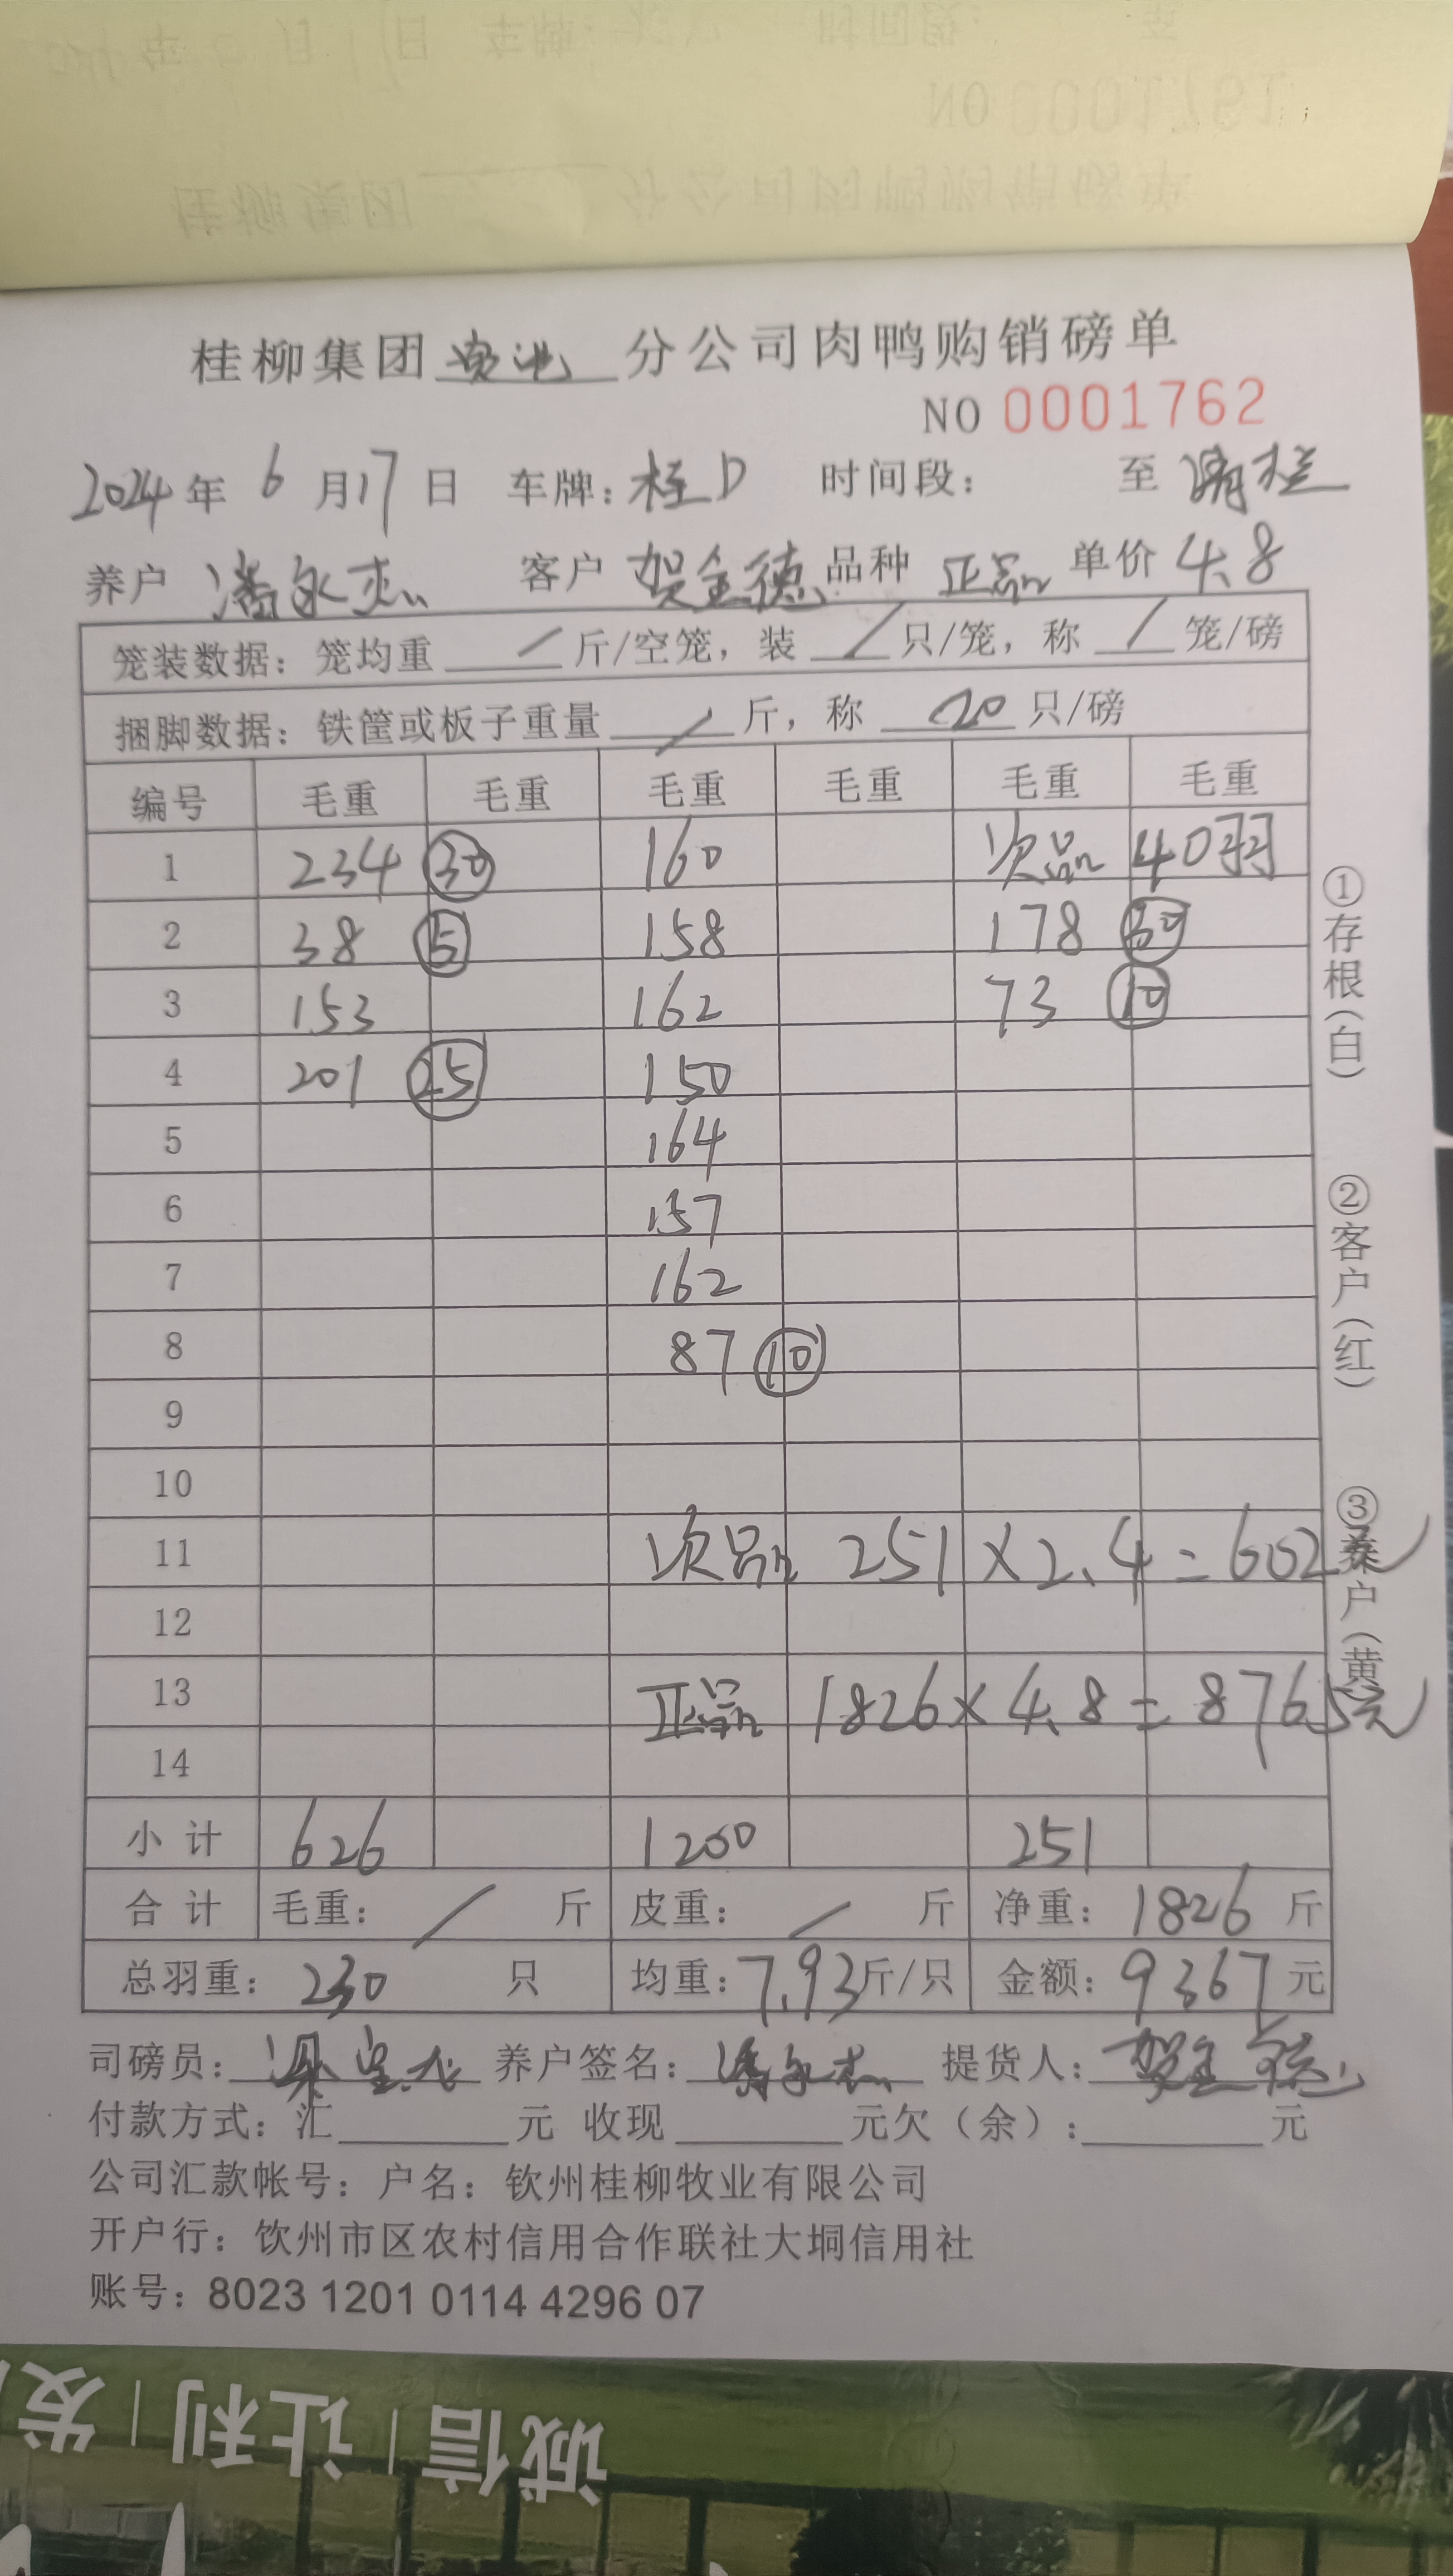 桂柳集团 分公司肉鸭购销磅单
NO 0001762
2024 年 6 月 17 日 车牌: 桂D 时间段: 至 清栏
养户 潘永杰 客户 贺全德 品种 正品 单价 4.8
笼装数据: 笼均重 / 斤/空笼, 装 / 只/笼, 称 / 笼/磅
捆脚数据: 铁筐或板子重量 / 斤, 称 20 只/磅
编号 毛重 毛重 毛重 毛重 毛重 毛重
1 234 30 160 次品 40羽
2 38 5 158 178 30
3 153 162 73 10
4 201 25 150
5 164
6 157
7 162
8 87 10
9
10
11 次品 251×2.4=602元
12
13 正品 1826×4.8=8765元
14
小计 626 1200 251
合计 毛重: / 斤 皮重: / 斤 净重: 1826 斤
总羽重: 230 只 均重: 7.93 斤/只 金额: 9367 元
司磅员: 养户签名: 潘永杰 提货人: 贺全德
付款方式: 汇 元 收现 元欠(余): 元
公司汇款帐号: 户名: 钦州桂柳牧业有限公司
开户行: 饮州市区农村信用合作联社大垌信用社
账号: 8023 1201 0114 4296 07
①存根(白)
②客户(红)
③养户(黄)
诚信|让利|发